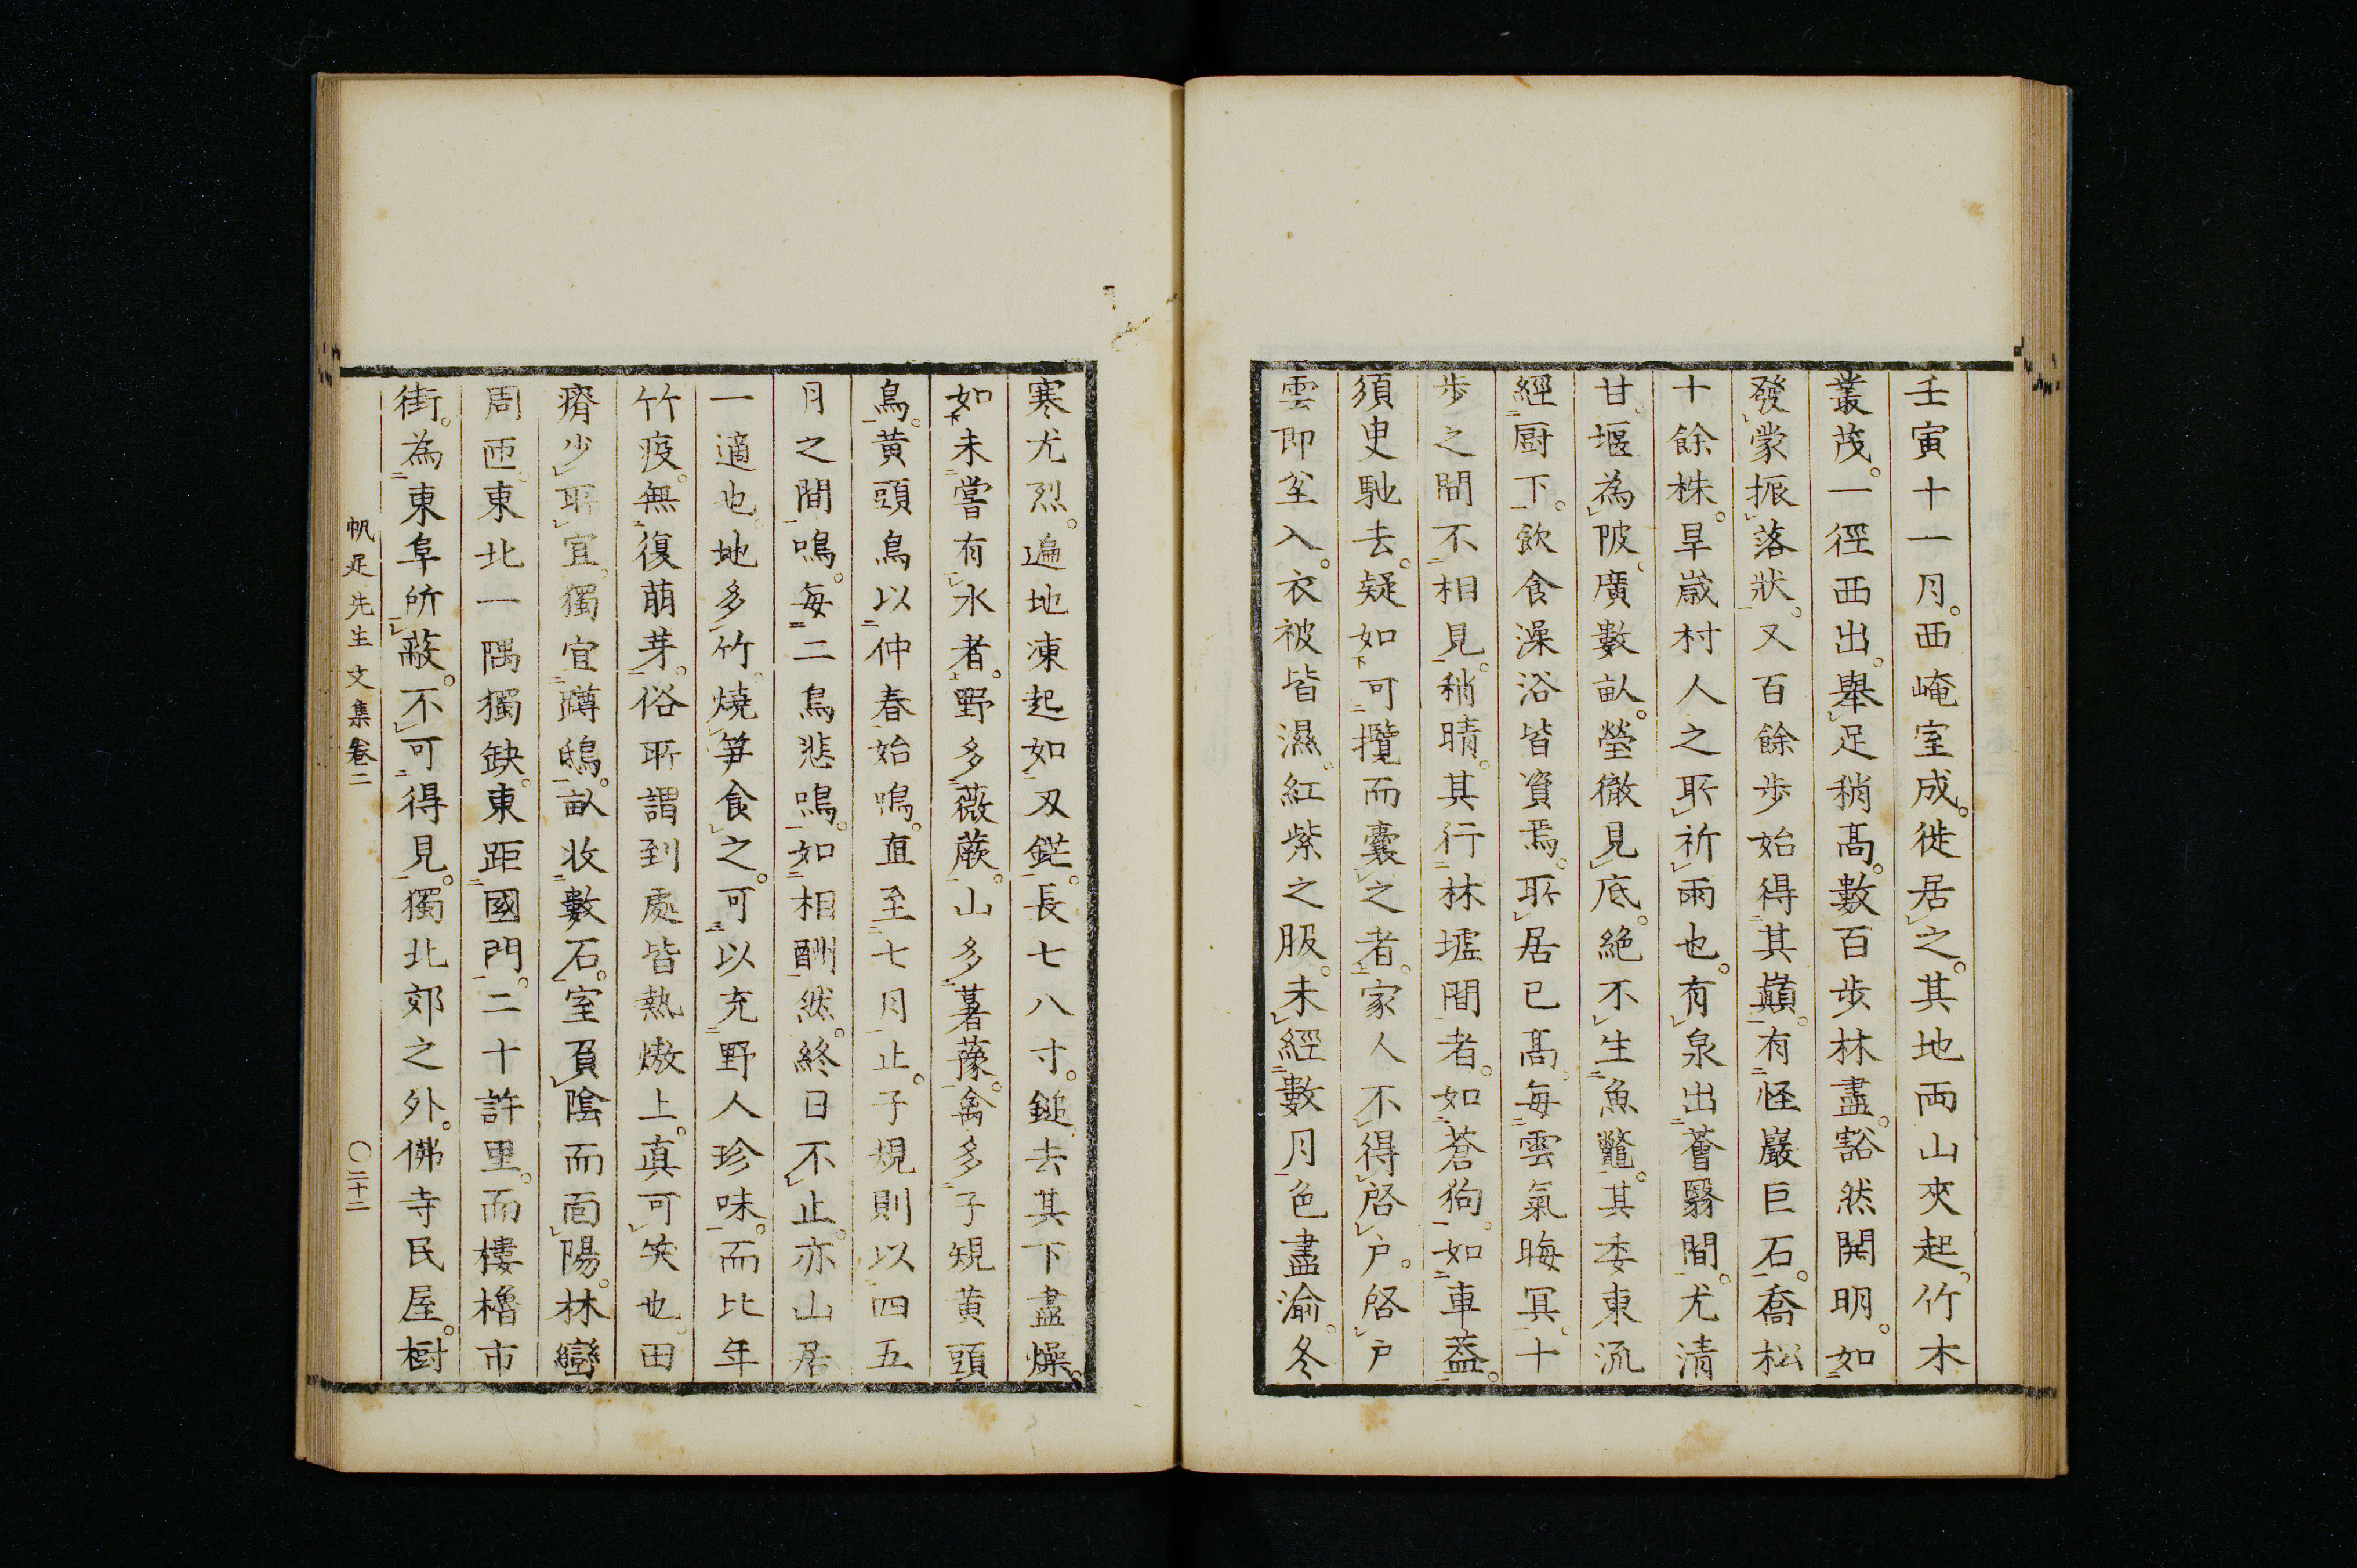 壬寅十一月。西崦室成。徙居之。其地両山夾起。竹木
叢茂。一徑西出。舉足稍髙。數百歩林盡。豁然開明。如
發蒙振落狀。又百餘歩始得其巔。有怪巖巨石。喬松
十餘株。旱嵗村人之所祈雨也。有泉出薈翳間。尤清
甘。堰為陂。廣數畝。瑩徹見底。絶不生魚鼈。其委東流
經厨下。飲食澡浴皆資焉。所居已髙。每雲氣晦冥。十
歩之間不相見。稍晴。其行林墟間者。如蒼狗。如車葢。
須臾馳去。疑如可攬而囊之者。家人不得啓戸。啓戸
雲即坌入。衣被皆濕。紅紫之服。未經數月色盡渝。冬
寒尤烈。遍地凍起如刄鋩。長七八寸。鎚去其下盡燥。
如未嘗有水者。野多薇蕨。山多薯蕷。禽多子規黄頭
鳥。黄頭鳥以仲春始鳴。直至七月止。子規則以四五
月之間鳴。每二鳥悲鳴。如相酬然。終日不止。亦山居
一適也。地多竹。燒笋食之。可以充野人珍味。而比年
竹疫。無復萠芽。俗所謂到處皆熱熬上。真可笑也。田
瘠少所宜。獨宜蹲鴟。畝收數石。室負陰而面陽。林巒
周匝。東北一隅獨缺。東距國門。二十許里。而樓櫓市
街。為東阜所蔽。不可得見。獨北郊之外。佛寺民屋。樹
帆足先生文集卷二
〇二十二